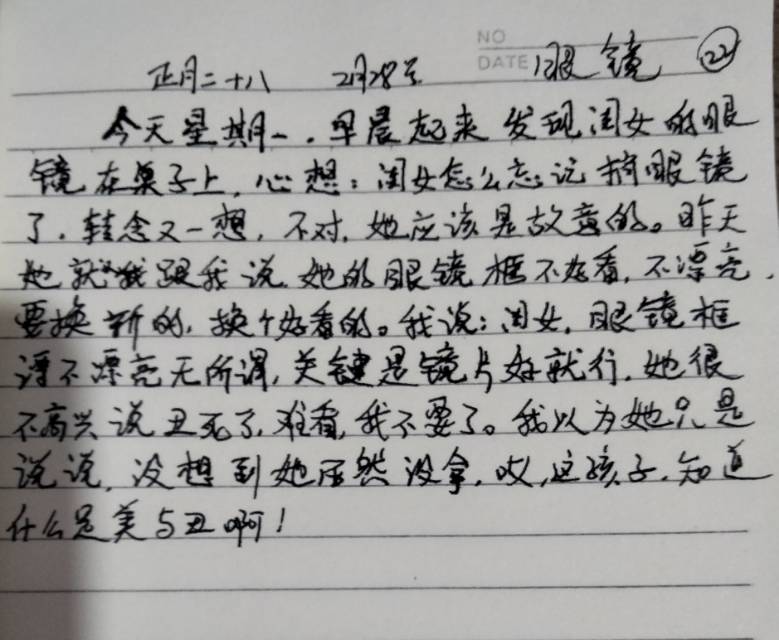 NO
DATE
正月二十八 2月28号 眼镜 (22)
今天星期一，早晨起来发现闺女的眼
镜在桌子上，心想：闺女怎么忘记拿眼镜
了，转念又一想，不对，她应该是故意的。昨天
她就跟我说，她的眼镜框不好看，不漂亮，
要换新的，换个好看的。我说：闺女，眼镜框
漂不漂亮无所谓，关键是镜片好就行，她很
不高兴说丑死了，难看，我不要了。我以为她只是
说说，没想到她居然没拿，哎，这孩子，知道
什么是美与丑啊！